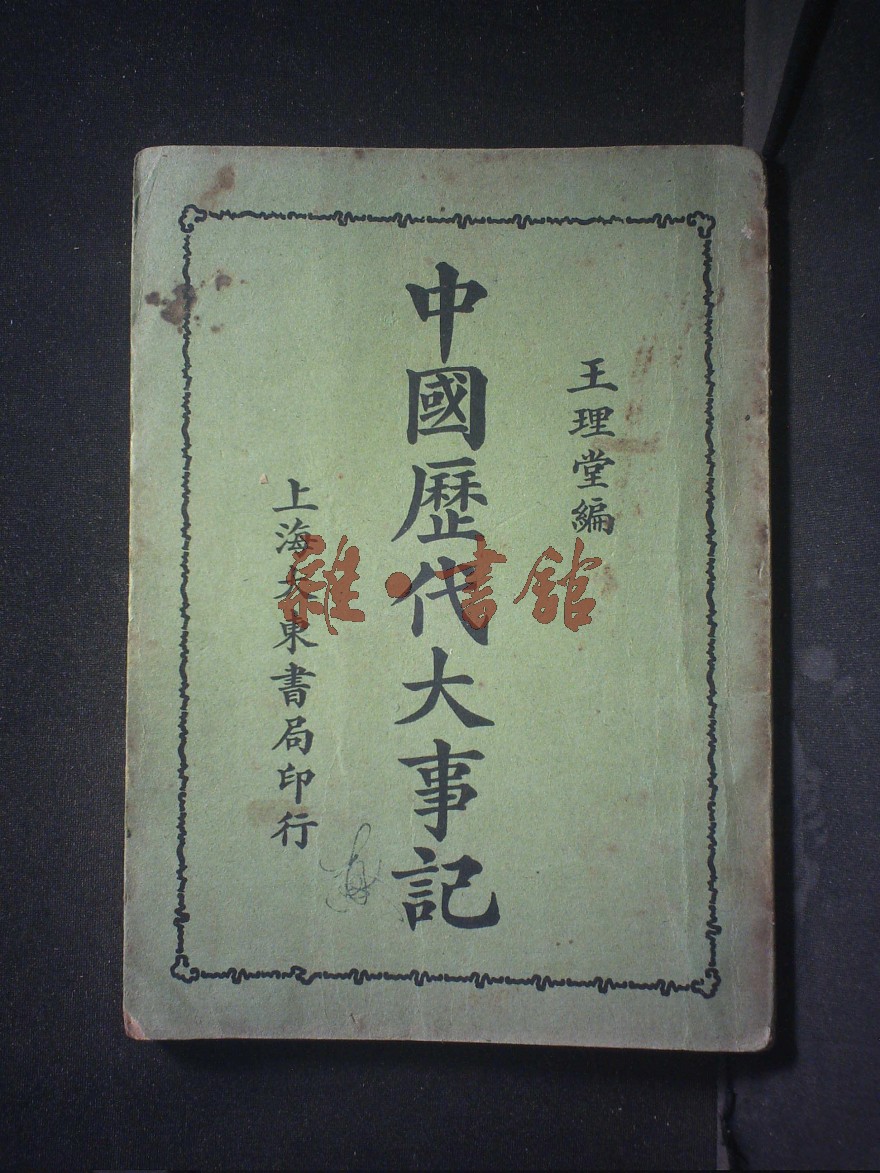 王理堂編
中國歷代大事記
上海大東書局印行
雜·書館